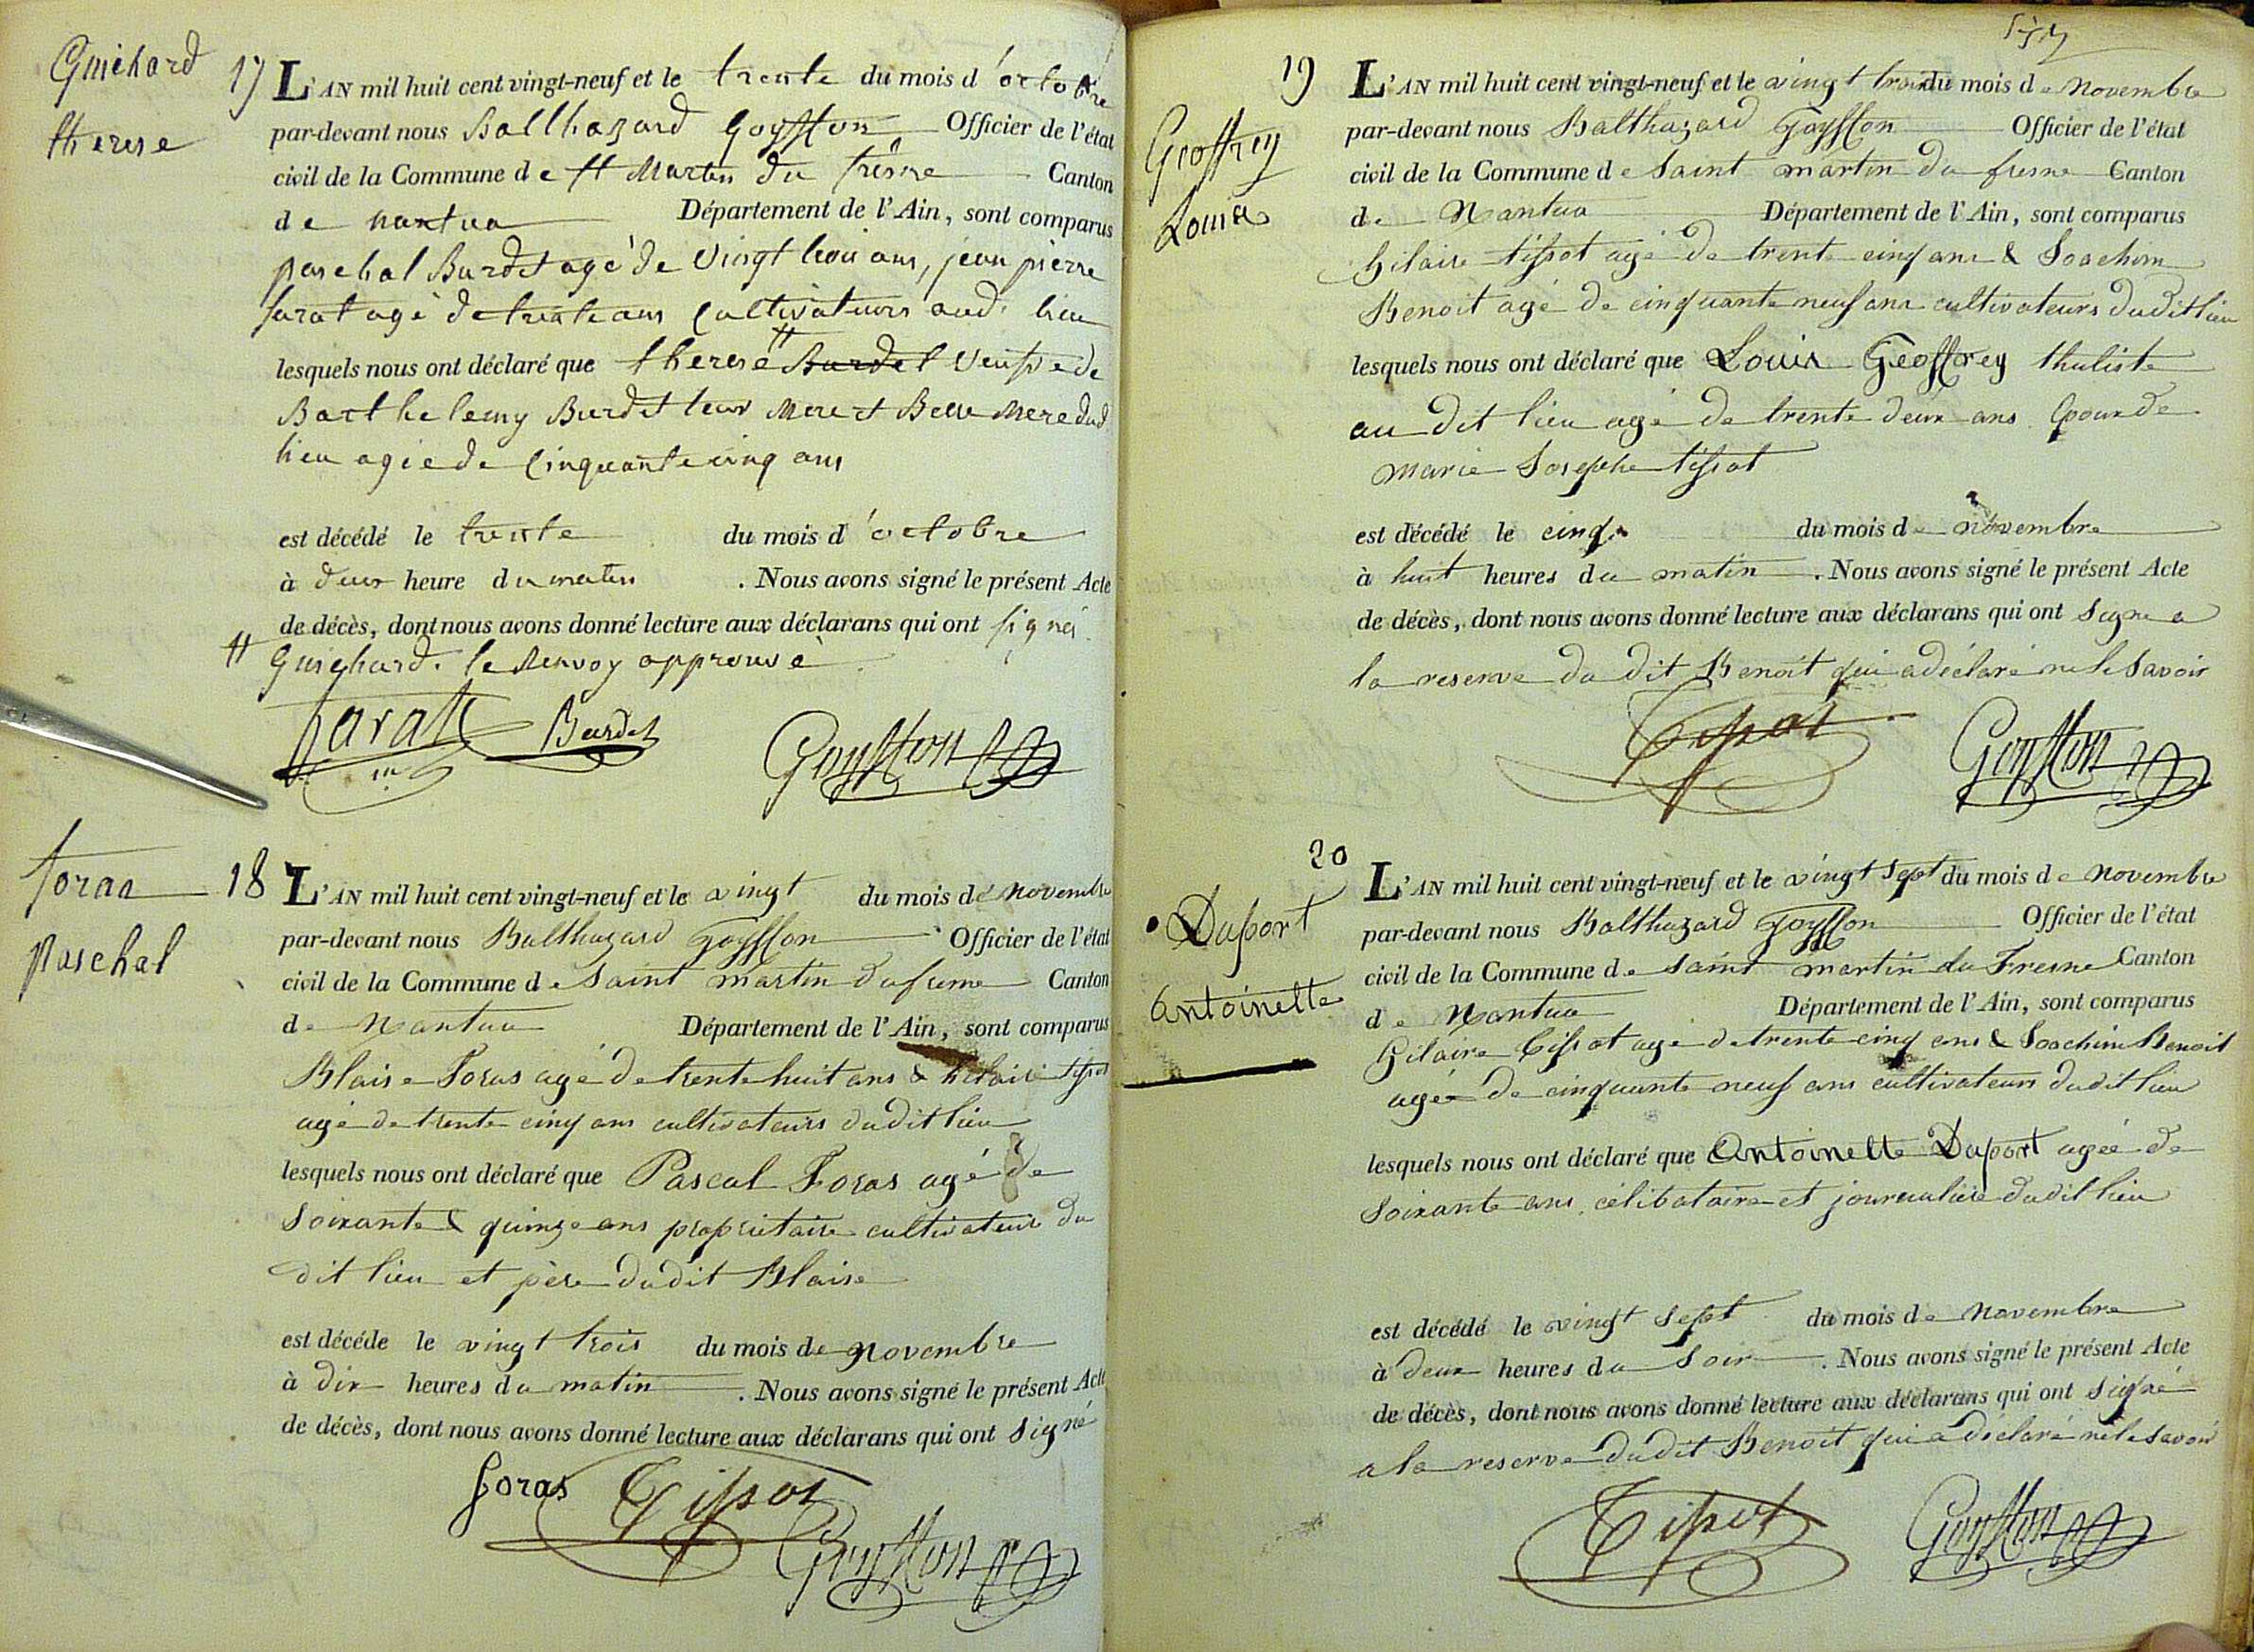 Guichard
therese
17 L'AN mil huit cent vingt-neuf et le trente du mois d'octobre
par-devant nous Balthazard Goyffon Officier de l'état
civil de la Commune de St Martin du frêsne Canton
de nantua Département de l'Ain, sont comparus
paschal Burdet agé de vingt trois ans, jean pierre
farat agé de trente ans Cultivateurs aud. lieu
lesquels nous ont déclaré que therese # Burdet veuve de
Barthelemy Burdet leur Mere et Belle Mere dud
lieu agée de Cinquante cinq ans
est décédé le trente du mois d'octobre
à deux heure du matin . Nous avons signé le présent Acte
de décès, dont nous avons donné lecture aux déclarans qui ont signé
# Guichard. le Renvoy approuvé
farat Burdet Goyffon
foras
Paschal
18 L'AN mil huit cent vingt-neuf et le vingt du mois de novembre
par-devant nous Balthazard Goyffon Officier de l'état
civil de la Commune de Saint martin du fresne Canton
de Nantua Département de l'Ain, sont comparus
Blaise Foras agé de trente huit ans & hilaire tissot
agé de trente cinq ans cultivateurs dudit lieu
lesquels nous ont déclaré que Pascal Foras agé de
Soixante & quinze ans propriétaire cultivateur du
dit lieu et père dudit Blaise
est décéde le vingt trois du mois de novembre
à dix heures du matin . Nous avons signé le présent Acte
de décès, dont nous avons donné lecture aux déclarans qui ont signé
foras Tissot
Goyffon
19 L'AN mil huit cent vingt-neuf et le vingt trois du mois de novembre
Geoffrey
Louis
par-devant nous Balthazard Goyffon Officier de l'état
civil de la Commune de Saint martin du fresne Canton
de Nantua Département de l'Ain, sont comparus
hilaire tissot agé de trente cinq ans & Joachim
Benoit agé de cinquante neuf ans cultivateurs dudit lieu
lesquels nous ont déclaré que Louis Geoffrey thuliste
au dit lieu agé de trente deux ans Epoux de
marie Josephe tissot
est décédé le cinq du mois de novembre
à huit heures du matin . Nous avons signé le présent Acte
de décès, dont nous avons donné lecture aux déclarans qui ont signé a
la reserve du dit Benoit qui a déclaré ne le Savoir
Tissot Goyffon
20 L'AN mil huit cent vingt-neuf et le vingt sept du mois de novembre
Duport
Antoinette
par-devant nous Balthazard Goyffon Officier de l'état
civil de la Commune de Saint martin du Fresne Canton
de Nantua Département de l'Ain, sont comparus
hilaire tissot agé de trente cinq ans & Joachim Benoit
agé de cinquante neuf ans cultivateurs dudit lieu
lesquels nous ont déclaré que Antoinette Duport agée de
Soixante ans célibataire et journalière dudit lieu
est décédé le vingt sept du mois de novembre
à deux heures du Soir . Nous avons signé le présent Acte
de décès, dont nous avons donné lecture aux déclarans qui ont signé
a la reserve dudit Benoit qui a déclaré ne le savoir
Tissot Goyffon